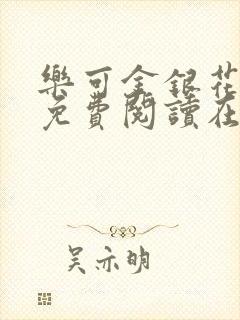 樂可金銀花
免費閱讀在
吴亦明